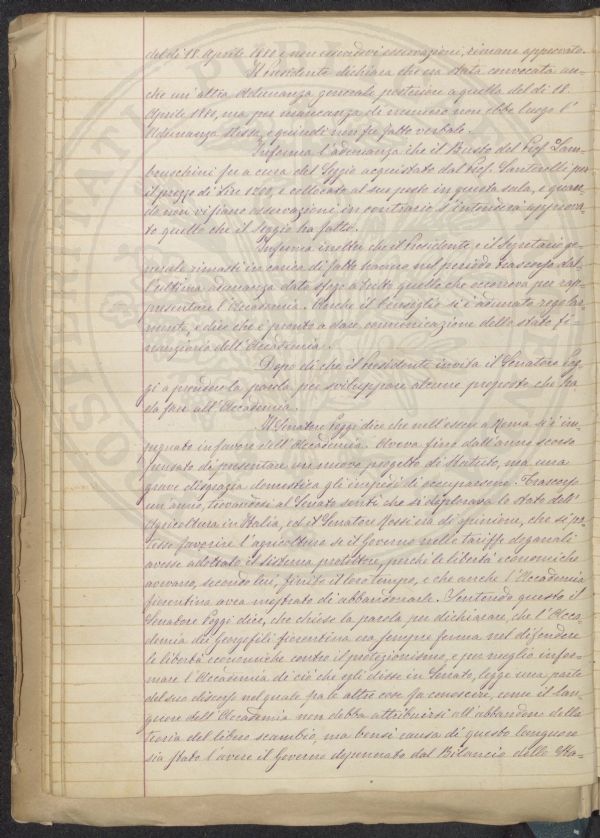 del dì 18 Aprile 1880 e non essendovi osservazioni, rimane approvato.
Il Presidente dichiara che era stata convocata an-
che un'altra Adunanza generale posteriore a quella del dì 18
Aprile 1880, ma per mancanza di numero non ebbe luogo l'
Adunanza stessa, e quindi non fu fatto verbale.
Informa l'adunanza che il Busto del Prof. Lam-
bruschini fu a cura del Seggio acquistato dal Prof. Santarelli per
il prezzo di Lire 1200, e collocato al suo posto in questa sala, e quan-
do non vi siano osservazioni in contrario s'intenderà approva-
to quello che il Seggio ha fatto.
Informa inoltre che il Presidente e il Segretario ge-
nerale rimasti in carica di fatto hanno nel periodo trascorso dal-
l'ultima adunanza dato sfogo a tutto quello che occorreva per rap-
presentare l'Accademia. Anche il Consiglio si è adunato regolar-
mente, e dice che è pronto a dare comunicazione dello stato fi-
nanziario dell'Accademia.
Dopo di che il Presidente invita il Senatore Pog-
gi a prendere la parola per sviluppare alcune proposte che ha
da fare all'Accademia.
Il Senatore Poggi dice che nell'essere a Roma si è im-
pegnato in favore dell'Accademia. Aveva fino dall'anno scorso
pensato di presentare un nuovo progetto di Statuto, ma una
grave disgrazia domestica gli impedì di occuparsene. Trascorso
un anno, trovandosi al Senato sentì che si deplorava lo stato dell'
Agricoltura in Italia, ed il Senatore Rossi era di opinione, che si po-
tesse favorire l'agricoltura se il Governo nelle tariffe doganali
avesse adottato il sistema protettore, perchè le libertà economiche
avevano, secondo lui, finito il loro tempo, e che anche l'Accademia
fiorentina avea mostrato di abbandonarle. Sentendo questo il
Senatore Poggi dice, che chiese la parola per dichiarare, che l'Acca-
demia dei Georgofili fiorentina era sempre ferma nel difendere
le libertà economiche contro il protezionismo, e per meglio infor-
mare l'Accademia di ciò che egli disse in Senato, legge una parte
del suo discorso nel quale fra le altre cose fa conoscere, come il lan-
guore dell'Accademia non debba attribuirsi all'abbandono della
teoria del libero scambio, ma bensì causa di questo languore
sia stato l'avere il Governo depennato dal Bilancio dello Sta-